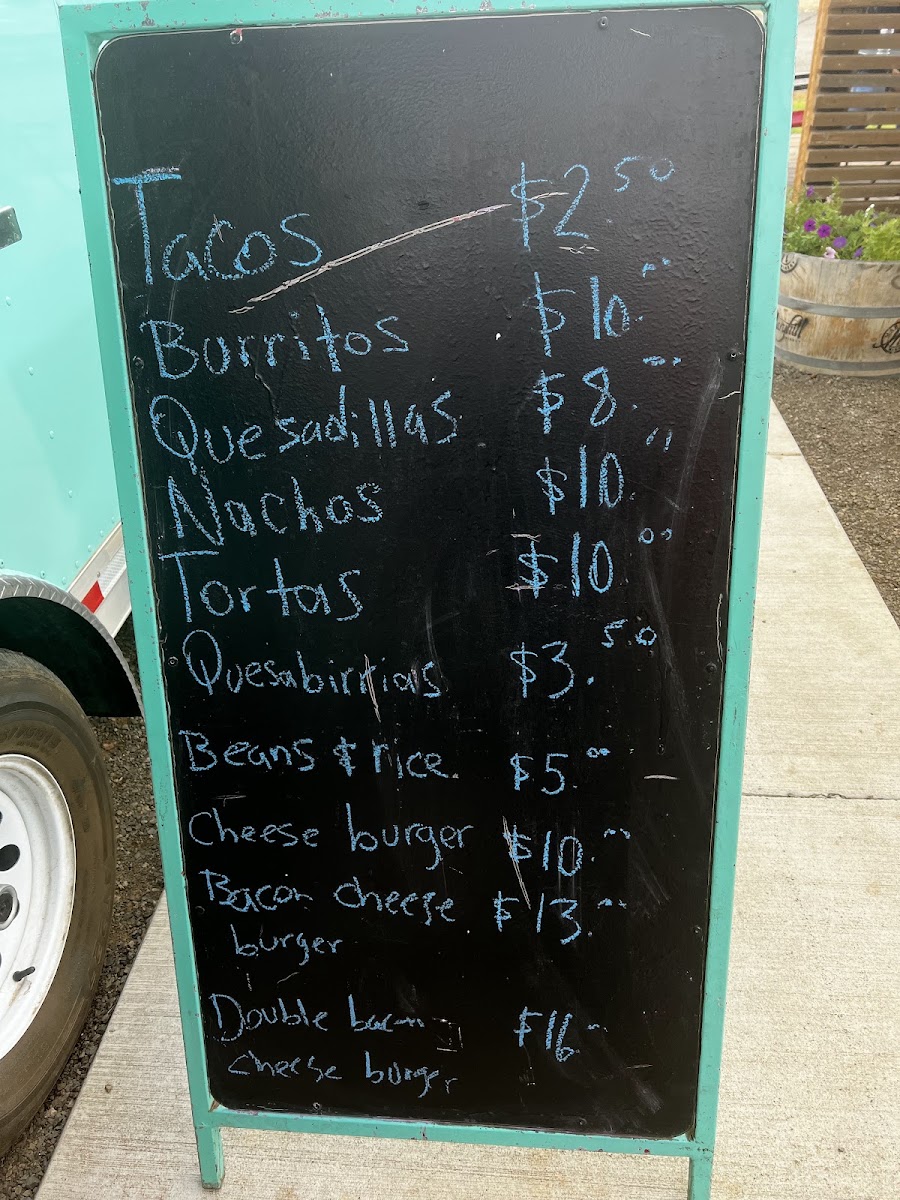 Tacos $2 50
Burritos $10.00
Quesadillas $8.00
Nachos $10.00
Tortas $10.00
Quesabirrias $3.50
Beans & rice $5.00
Cheese burger $10.00
Bacon cheese $13.00
burger
Double bacon $16
cheese burger